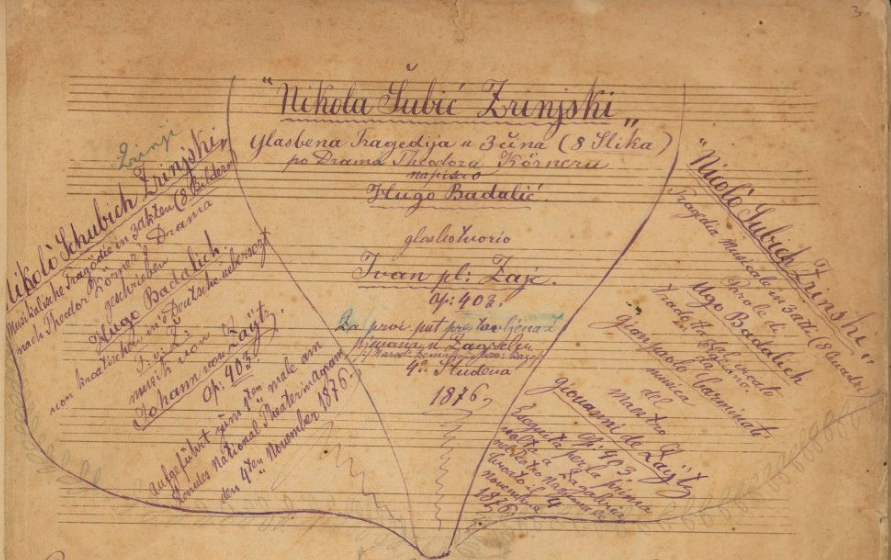 3
"Nikola Šubić Zrinjski"
Glasbena Tragedija u 3 čina (8 Slika)
po Drama Theodora Körnera
napisao
Hugo Badalić.
glasbotvorio
Ivan pl: Zajc.
Op: 403.
Za prvi put
u Zagrebu
4. Studena
1876,
Zrinji
Nikolò Schubich Zrinjski,
Musikalische Tragödie in 3 akten (8 Bildern)
nach Theodor Körner's Drama
geschrieben
Hugo Badalich.
von kroatischen in's Deutsche uebersezt
musik von
Johann von Zaytz.
Op: 403.
aufgeführt zum 1ten male am
Landes National Theater in agram
den 4ten November 1876.
"Nicolò Subich Zrinski"
Tragedia Musicale in 3 atti (8 quadri)
Parole di
Ugo Badalich
tradotte dal croato
da
Giampaolo
musica
del
maestro
Giovanni de Zaytz
Op: 403
Eseguita per la prima
volta a Zagabria
4
novembre
1876.